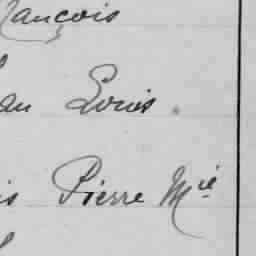 rançois
an Louis
is Pierre Mie